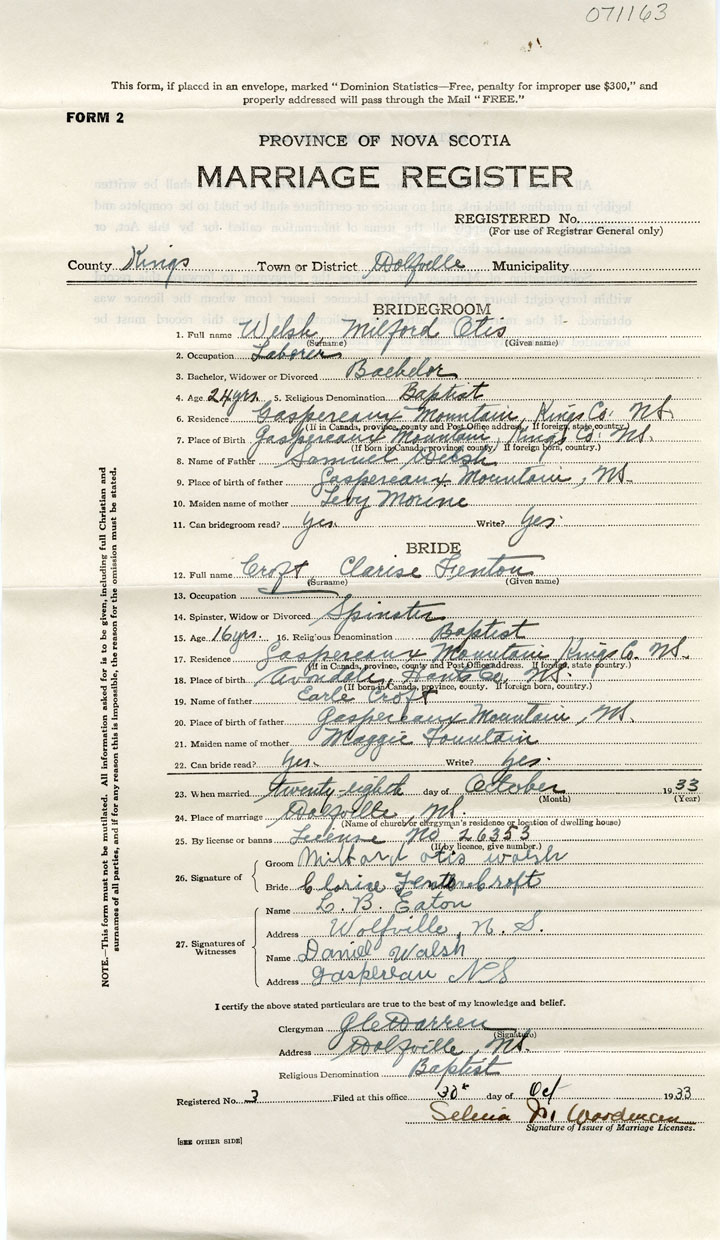 071163
This form, if placed in an envelope, marked "Dominion Statistics—Free, penalty for improper use $300," and
properly addressed will pass through the Mail "FREE."
FORM 2
PROVINCE OF NOVA SCOTIA
MARRIAGE REGISTER
REGISTERED No.
(For use of Registrar General only)
County Kings Town or District Wolfville Municipality
BRIDEGROOM
1. Full name Welsh Milford Otis
(Surname) (Given name)
2. Occupation Laborer
3. Bachelor, Widower or Divorced Bachelor
4. Age 24 yrs. 5. Religious Denomination Baptist
6. Residence Gaspereaux Mountain, Kings Co. NS.
(If in Canada, province, county and Post Office address. If foreign, state country.)
7. Place of Birth Gaspereaux Mountain, Kings Co. NS.
(If born in Canada, province, county. If foreign born, country.)
8. Name of Father Samuel Welsh
9. Place of birth of father Gaspereaux Mountain, NS.
10. Maiden name of mother Levy Morine
11. Can bridegroom read? Yes. Write? Yes.
BRIDE
12. Full name Croft, Clarise Fenton
(Surname) (Given name)
13. Occupation
14. Spinster, Widow or Divorced Spinster
15. Age 16 yrs. 16. Religious Denomination Baptist
17. Residence Gaspereaux Mountain, Kings Co. NS.
(If in Canada, province, county and Post Office address. If foreign, state country.)
18. Place of birth Avondale, Hants Co., NS.
(If born in Canada, province, county. If foreign born, country.)
19. Name of father Earle Croft
20. Place of birth of father Gaspereaux Mountain, NS.
21. Maiden name of mother Maggie Fountain
22. Can bride read? Yes. Write? Yes.
23. When married twenty-eighth day of October 1933
(Month) (Year)
24. Place of marriage Wolfville, NS.
(Name of church or clergyman's residence or location of dwelling house)
25. By license or banns License No 26353
(If by licence, give number.)
26. Signature of
Groom Milford otis walsh
Bride Clarise Fenton Croft
27. Signatures of Witnesses
Name L. B. Eaton
Address Wolfville, N. S.
Name Daniel Walsh
Address Gaspereau NS
I certify the above stated particulars are true to the best of my knowledge and belief.
Clergyman
(Signature)
Address Wolfville, NS.
Religious Denomination Baptist
Registered No. 3 Filed at this office 30th day of Oct 1933
Selina
Signature of Issuer of Marriage Licenses.
[SEE OTHER SIDE]
NOTE.—This form must not be mutilated. All information asked for is to be given, including full Christian and
surnames of all parties, and if for any reason this is impossible, the reason for the omission must be stated.